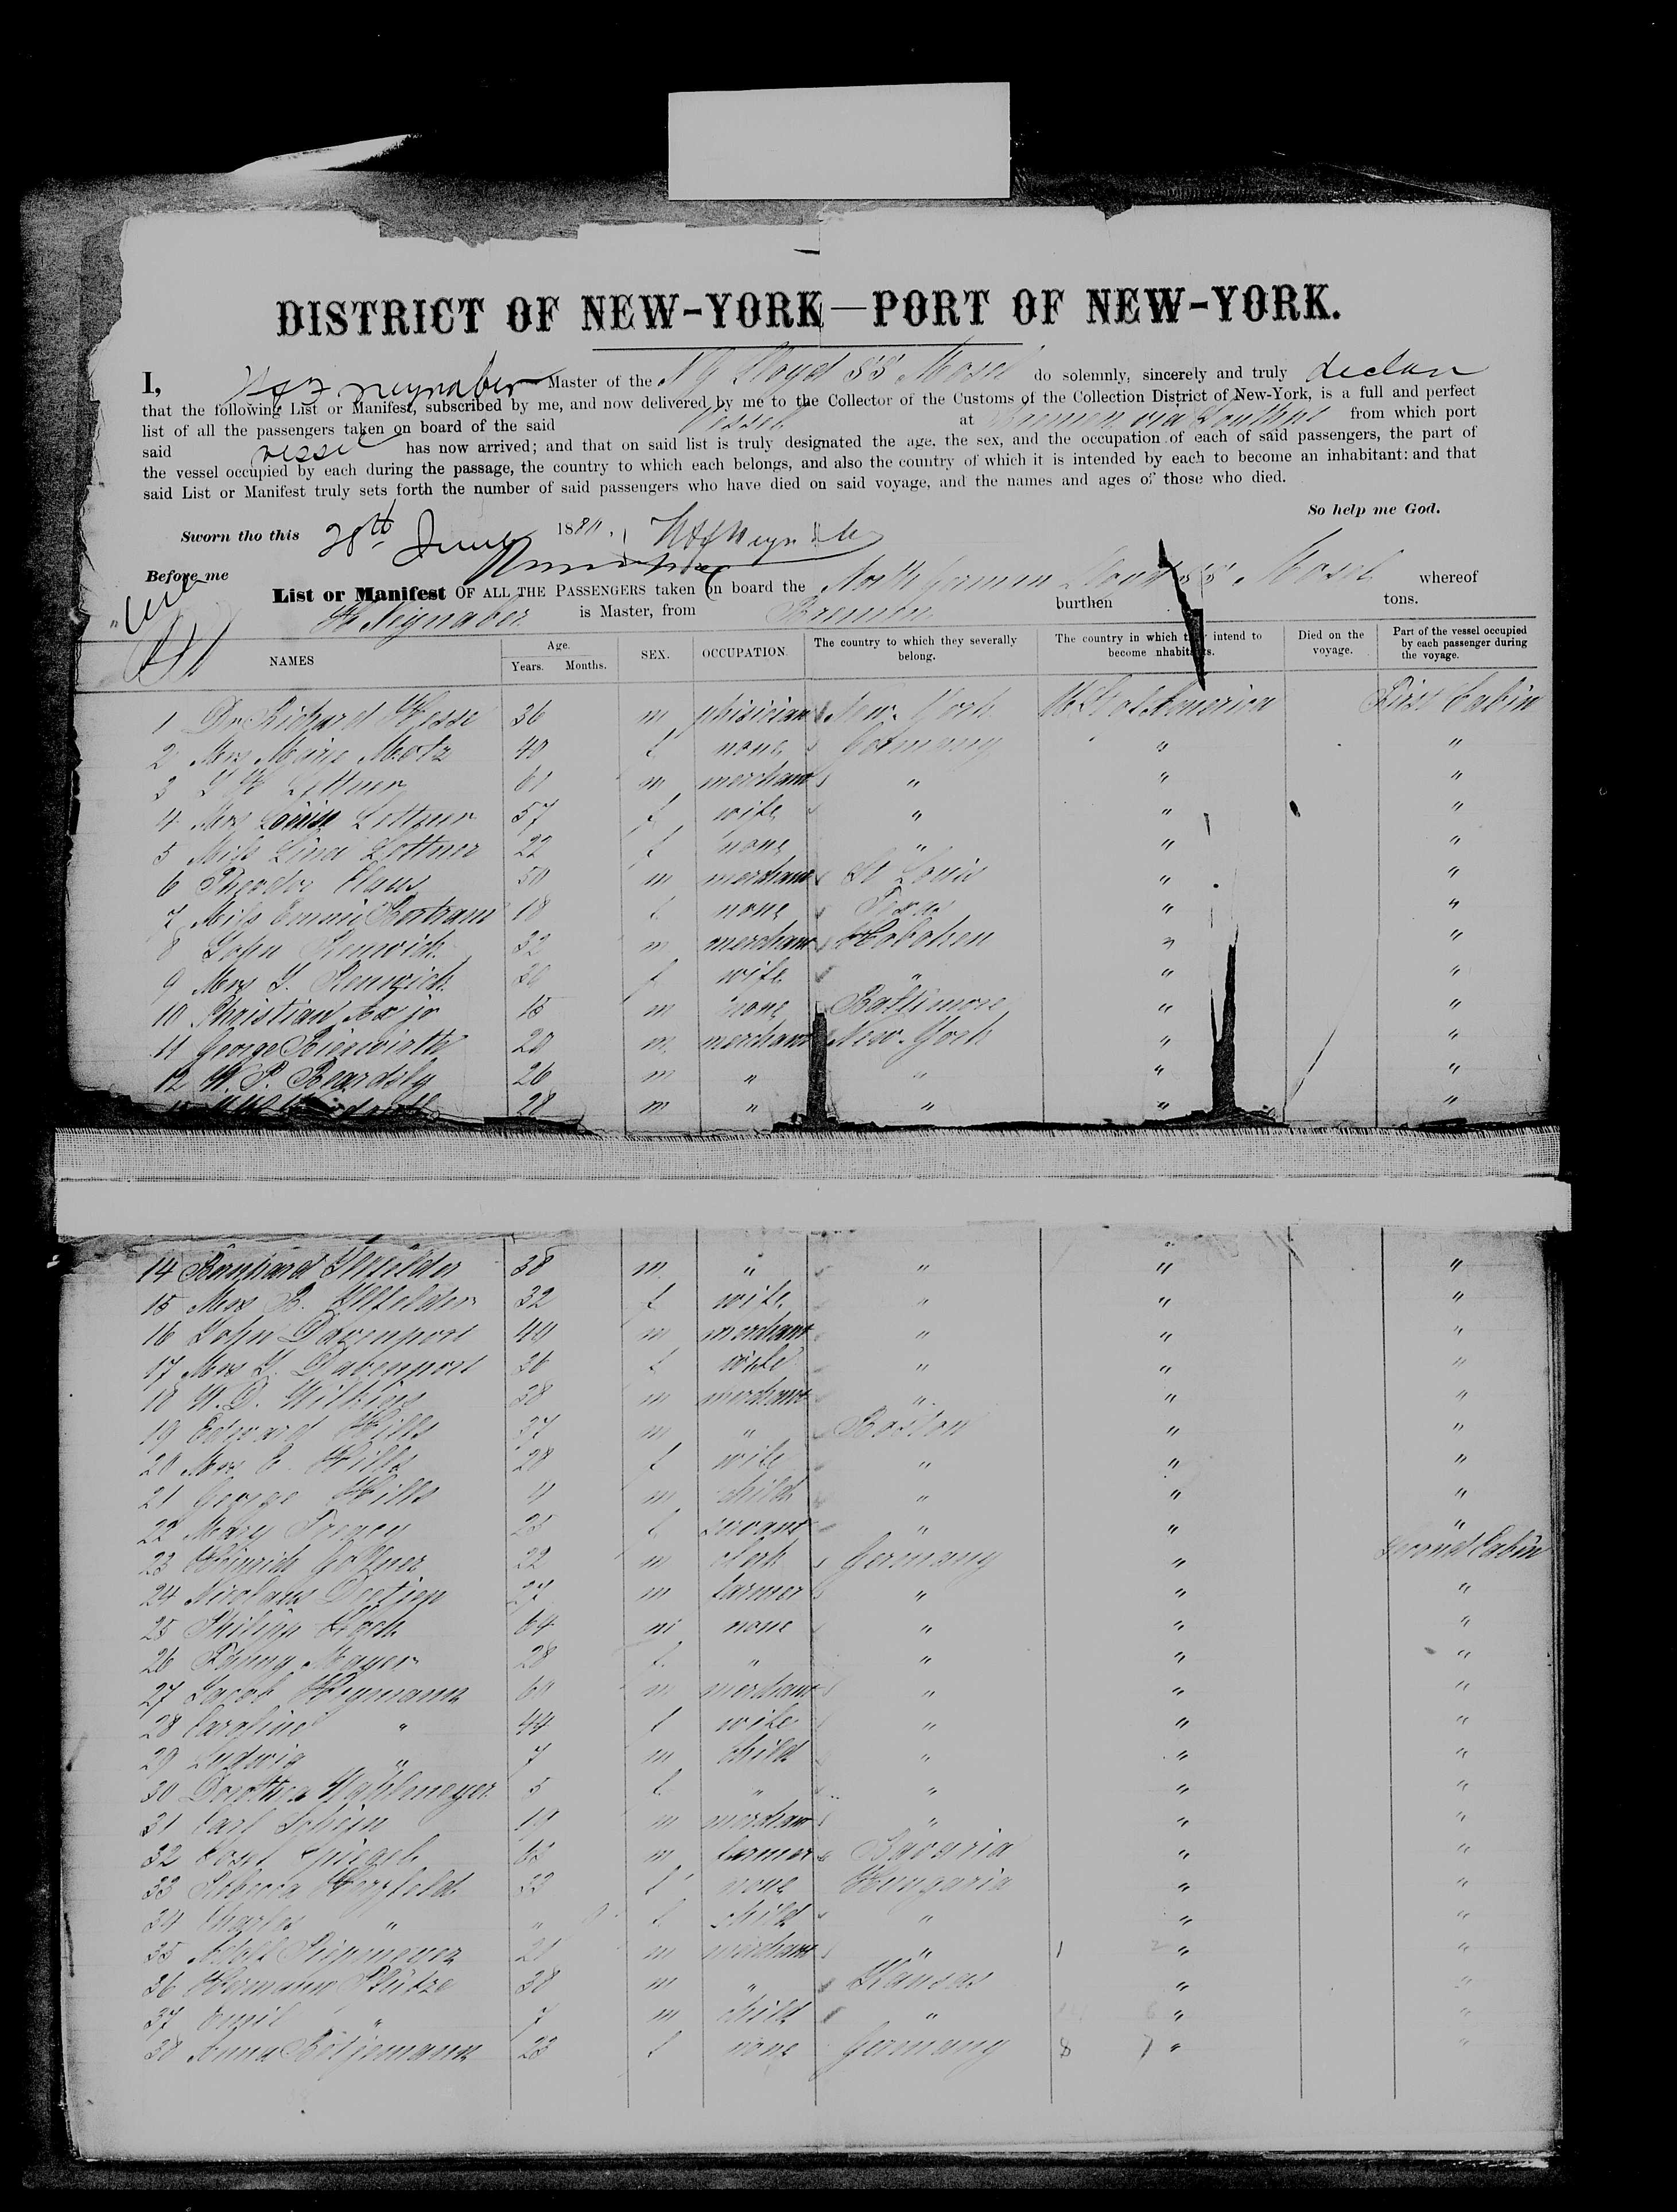 DISTRICT OF NEW-YORK—PORT OF NEW-YORK.
I, Neynaber Master of the N G Lloyd SS Mosel do solemnly, sincerely and truly declare
that the following List or Manifest, subscribed by me, and now delivered by me to the Collector of the Customs of the Collection District of New-York, is a full and perfect
list of all the passengers taken on board of the said Vessel at Bremen via from which port
said vessel has now arrived; and that on said list is truly designated the age, the sex, and the occupation of each of said passengers, the part of
the vessel occupied by each during the passage, the country to which each belongs, and also the country of which it is intended by each to become an inhabitant: and that
said List or Manifest truly sets forth the number of said passengers who have died on said voyage, and the names and ages of those who died.
So help me God.
Sworn tho this 28th June 188
Before me
List or Manifest OF ALL THE PASSENGERS taken on board the North German Lloyd SS Mosel whereof
Neynaber is Master, from Bremen burthen tons.
NAMES Age. Years. Months. SEX. OCCUPATION. The country to which they severally belong. The country in which they intend to become inhabitants. Died on the voyage. Part of the vessel occupied by each passenger during the voyage.
1 Dr Richard Hesse 36 m phisician New-York U St of America First Cabin
2 Mrs Marie Motz 40 f none Germany " "
3 Lettner 61 m merchant " " "
4 Mrs Louise Lettner 57 f wife " " "
5 Miss Lina Lettner 22 f none " " "
6 Theodor Claus 50 m merchant St Louis " "
7 Miss Emmie Bertram 18 f none Texas " "
8 John Renwick 32 m merchant Hoboken " "
9 Mrs J. Renwick f wife " " "
10 Christian Ax jr 15 m none Baltimore " "
11 George Bierwirth 20 m merchant New-York " "
12 W. P. Beardsly 26 m " " " "
28 m " " " "
14 Bernhard Ullfelder 38 m " " " "
15 Mrs B. Ullfelder 32 f wife " " "
16 John Davenport 40 m merchant " " "
17 Mrs J. Davenport f wife " " "
18 W. D. Wilkins 38 m merchant " " "
19 Edward Hills 37 m " Boston " "
20 Mrs E. Hills 28 f wife " " "
21 George Hills 4 m child " " "
22 Mary Tracey 25 f servant " " "
23 Heinrich 22 m clerk Germany " second Cabin
24 Nicolaus m farmer " " "
25 Philipp Koch 64 m none " " "
26 Fanny Mayer 28 f " " " "
27 Jacob Heymann 60 m merchant " " "
28 Caroline " 44 f wife " " "
29 Ludwig " 7 m child " " "
30 Dorothea 5 f " " " "
31 Carl 19 m merchant " " "
32 Josef Spiegel m farmer Bavaria " "
33 Rebecca Herzfeld f none Hungaria " "
34 Charles " " f child " " "
35 Adolf 21 m merchant " " "
36 Hermann Schütze 38 m " Kansas " "
37 Emil " 7 m child " " "
38 Anna Bötjemann 23 f none Germany " "